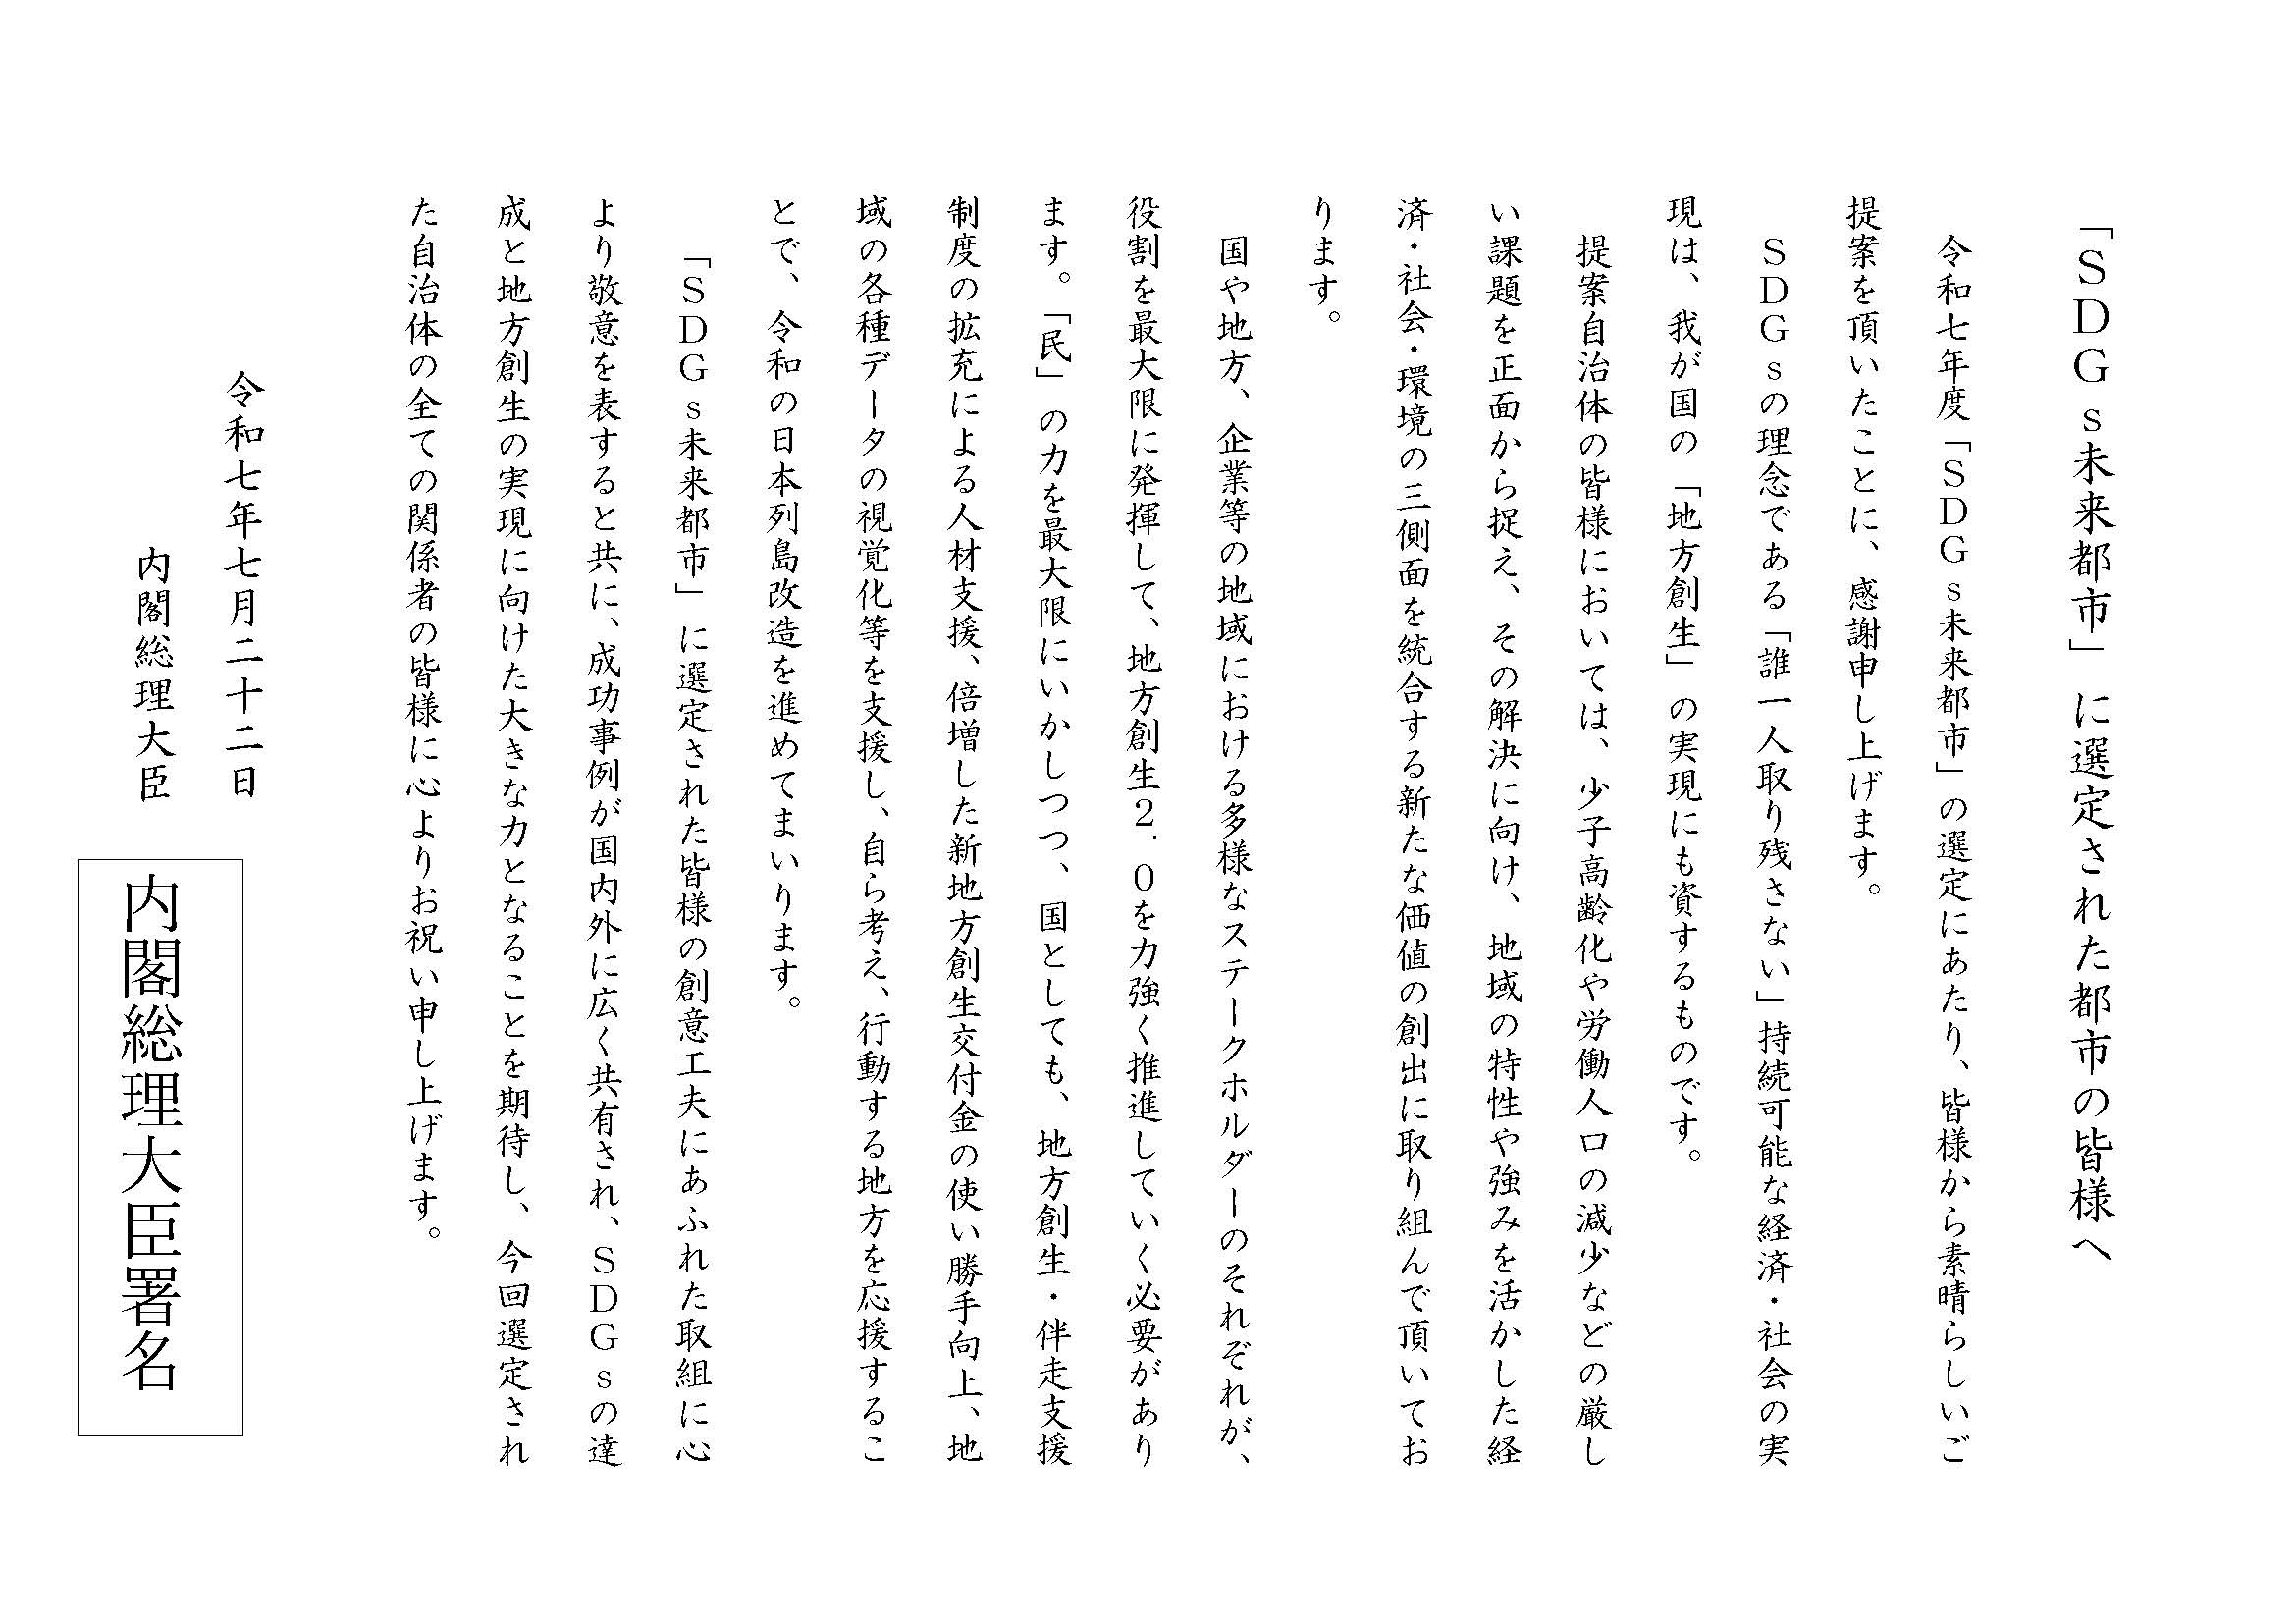 「ＳＤＧｓ未来都市」に選定された都市の皆様へ
令和七年度「ＳＤＧｓ未来都市」の選定にあたり、皆様から素晴らしいご
提案を頂いたことに、感謝申し上げます。
ＳＤＧｓの理念である「誰一人取り残さない」持続可能な経済・社会の実
現は、我が国の「地方創生」の実現にも資するものです。
提案自治体の皆様においては、少子高齢化や労働人口の減少などの厳し
い課題を正面から捉え、その解決に向け、地域の特性や強みを活かした経
済・社会・環境の三側面を統合する新たな価値の創出に取り組んで頂いてお
ります。
国や地方、企業等の地域における多様なステークホルダーのそれぞれが、
役割を最大限に発揮して、地方創生２．０を力強く推進していく必要があり
ます。「民」の力を最大限にいかしつつ、国としても、地方創生・伴走支援
制度の拡充による人材支援、倍増した新地方創生交付金の使い勝手向上、地
域の各種データの視覚化等を支援し、自ら考え、行動する地方を応援するこ
とで、令和の日本列島改造を進めてまいります。
「ＳＤＧｓ未来都市」に選定された皆様の創意工夫にあふれた取組に心
より敬意を表すると共に、成功事例が国内外に広く共有され、ＳＤＧｓの達
成と地方創生の実現に向けた大きな力となることを期待し、今回選定され
た自治体の全ての関係者の皆様に心よりお祝い申し上げます。
令和七年七月二十二日
内閣総理大臣
内閣総理大臣署名